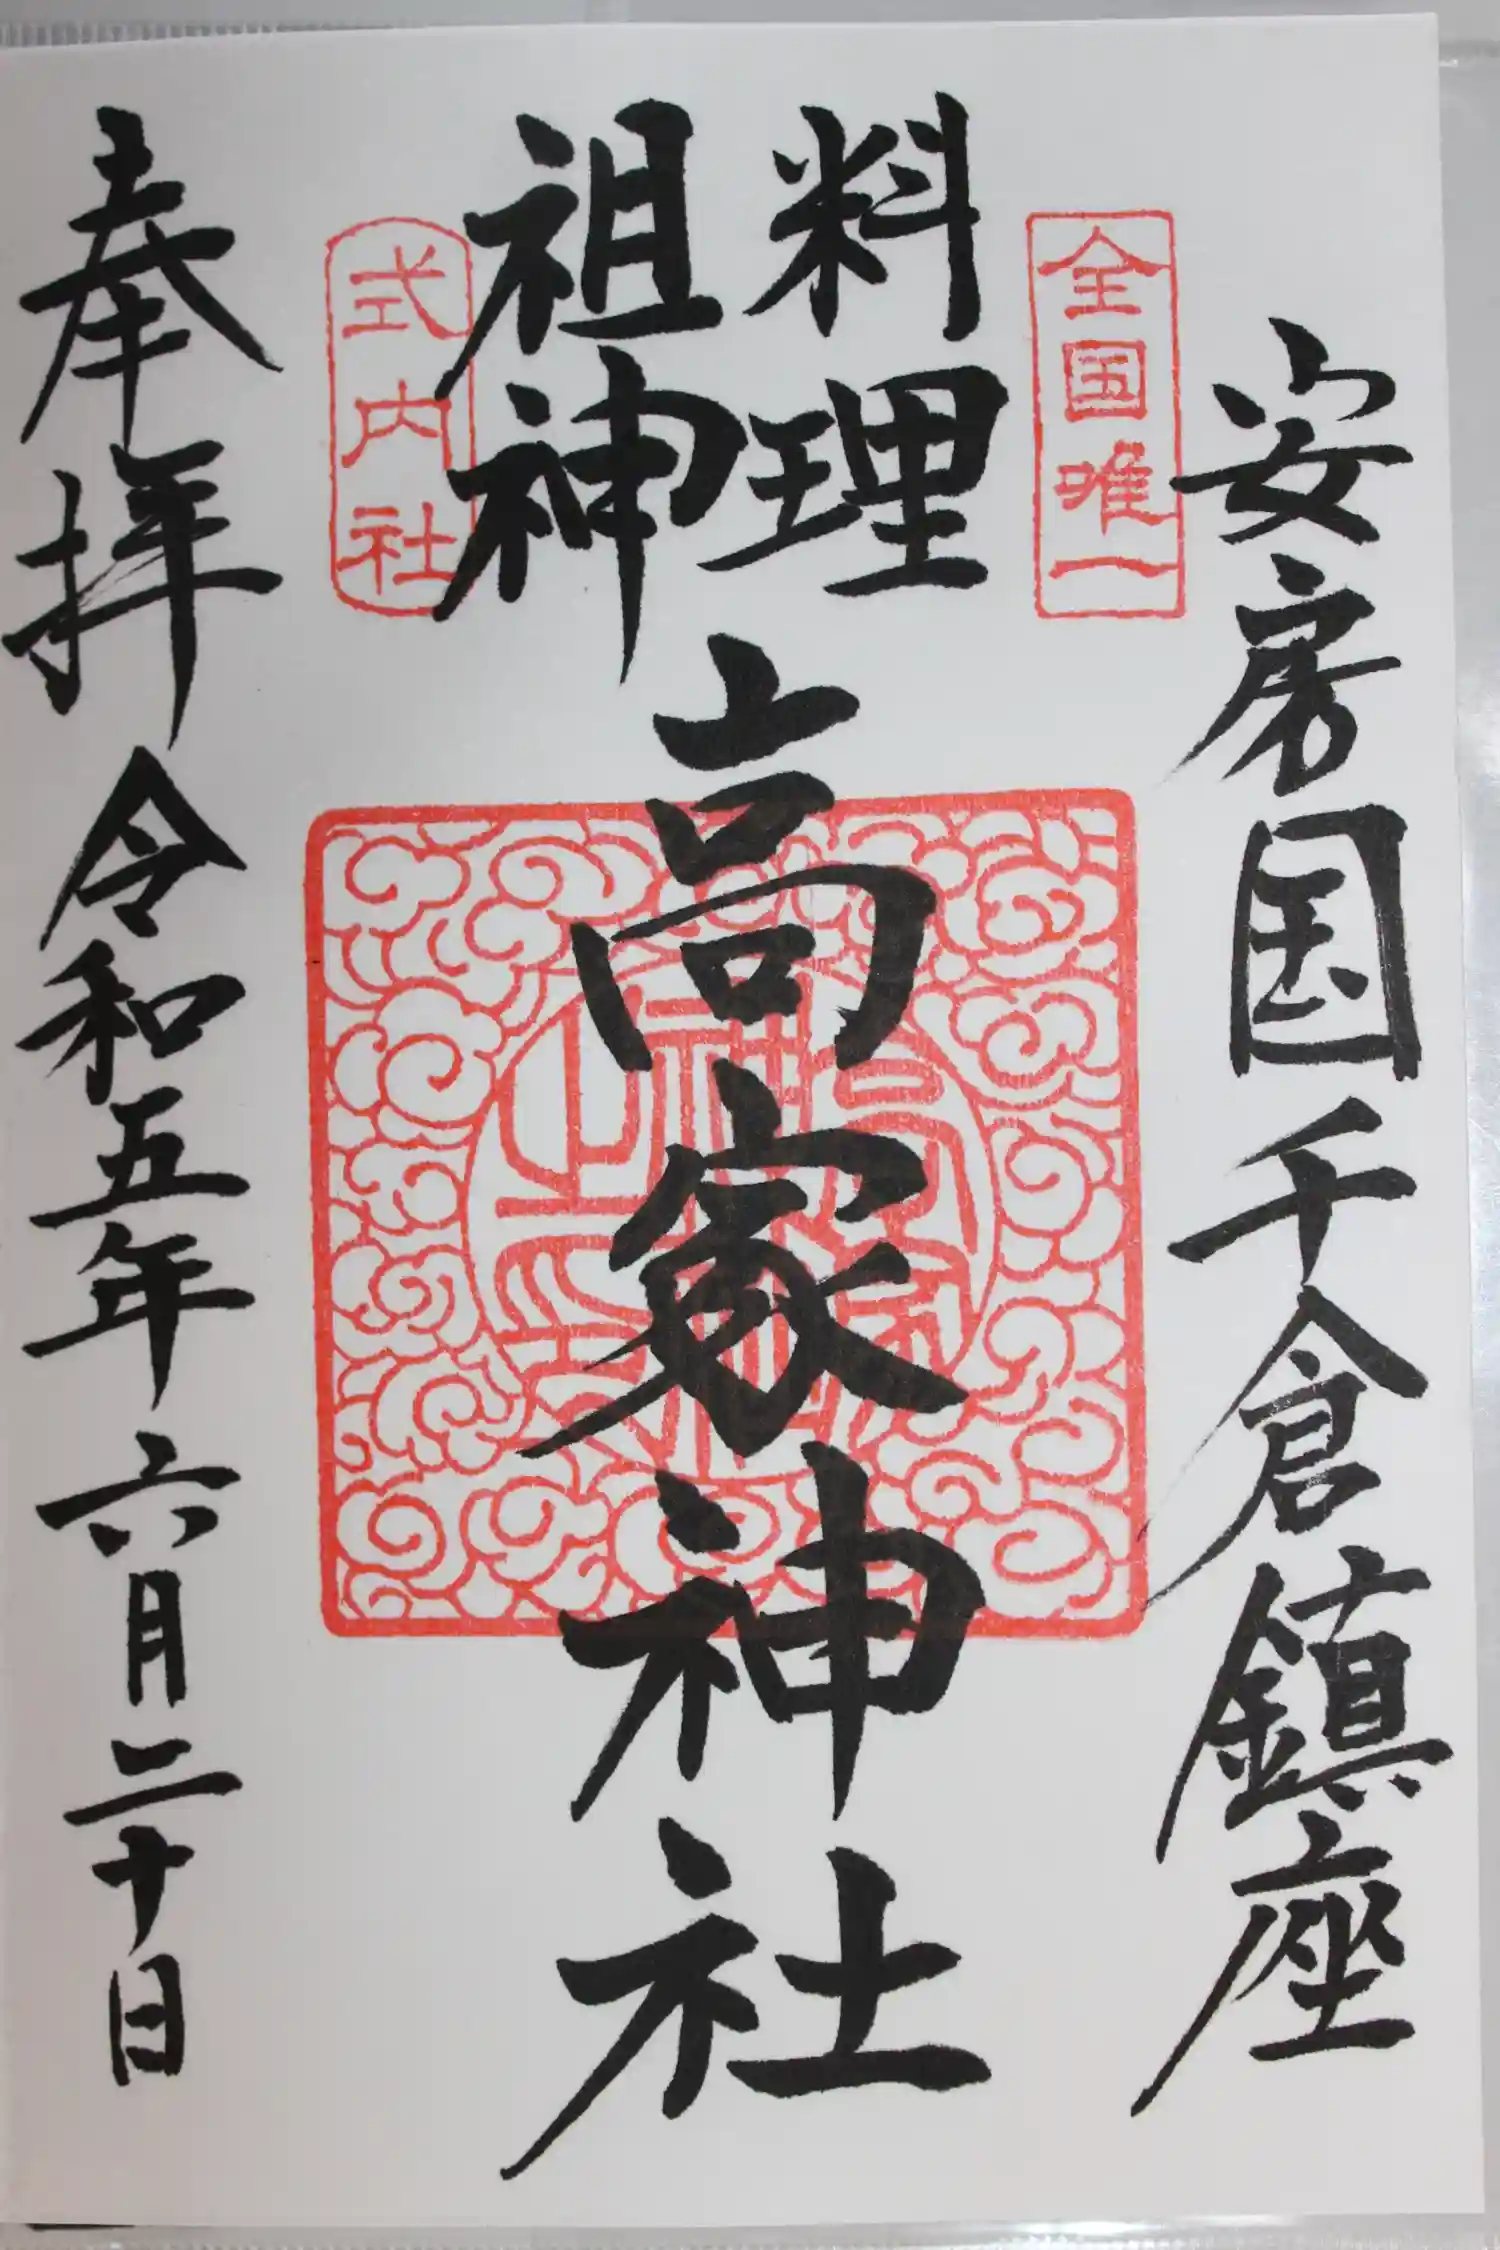 安房国千倉鎮座
全国唯一
料理
祖神
式内社
高家神社
奉拝 令和五年六月二十日